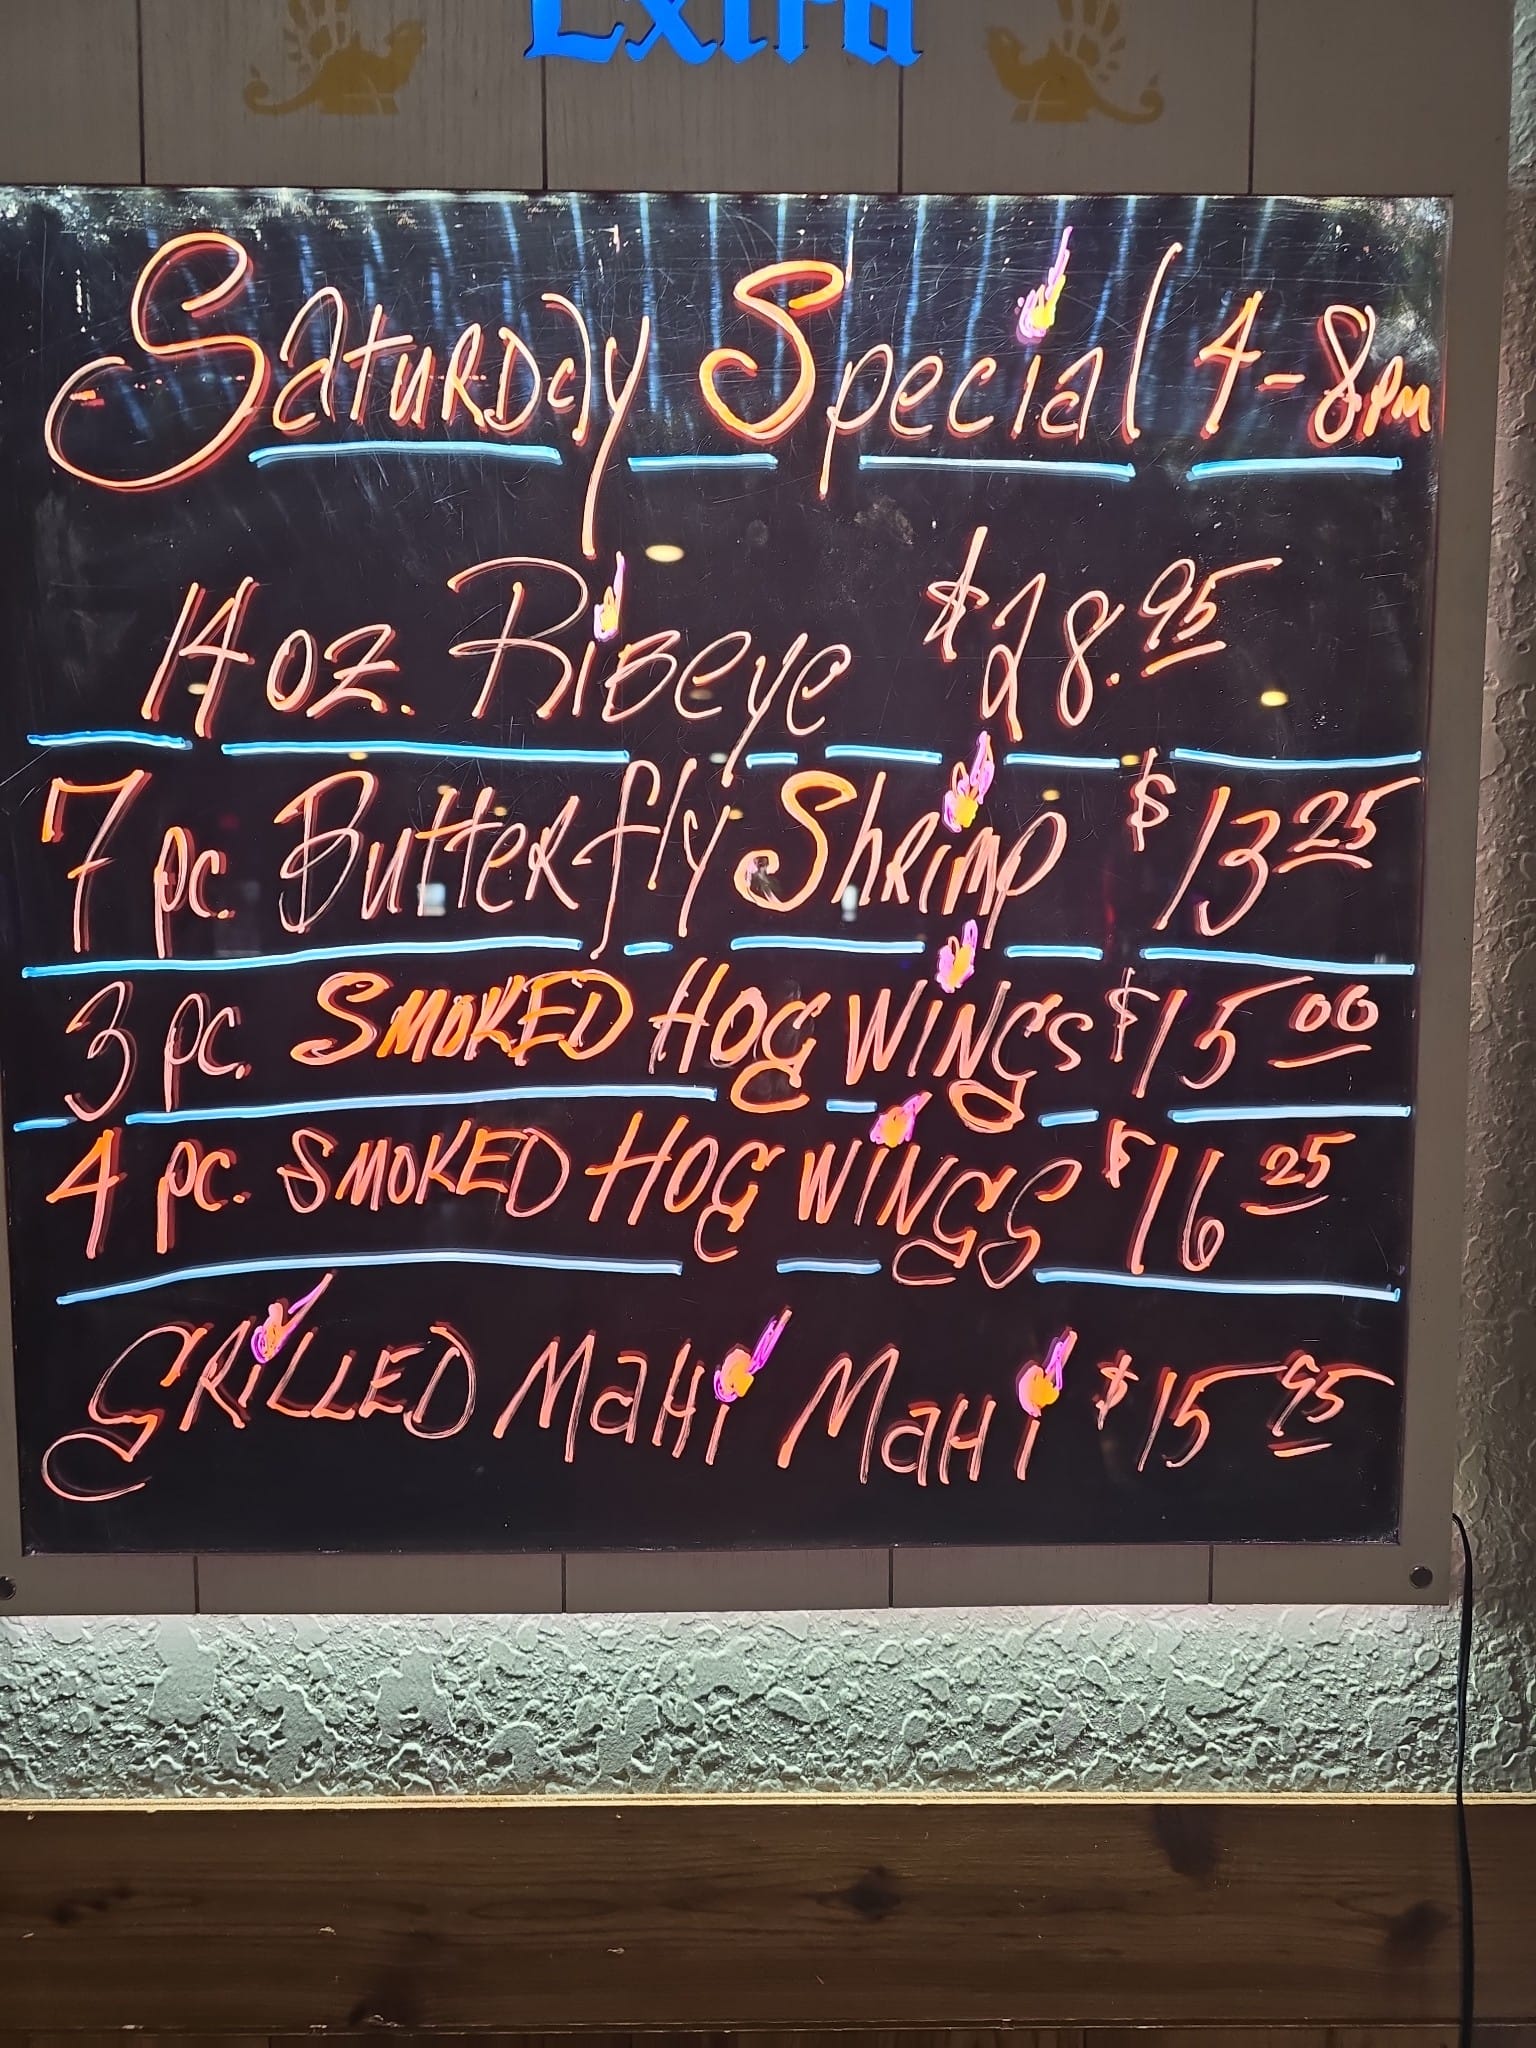 Extra
Saturday Special 4-8pm
14 oz. Ribeye $28.95
7 pc. Butterfly Shrimp $13 25
3 pc. SMOKED HOG WINGS $15 00
4 pc. SMOKED HOG WINGS $16 25
GRILLED MaHi MaHi $15 95